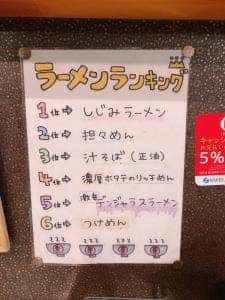 ラーメンランキング
1位⇨ しじみラーメン
2位⇨ 担々めん
3位⇨ 汁そば(正油)
4位⇨ 濃厚ホタテのリッチめん
5位⇨ 激辛デンジャラスラーメン
6位⇨ つけめん
キャッシュ
5%